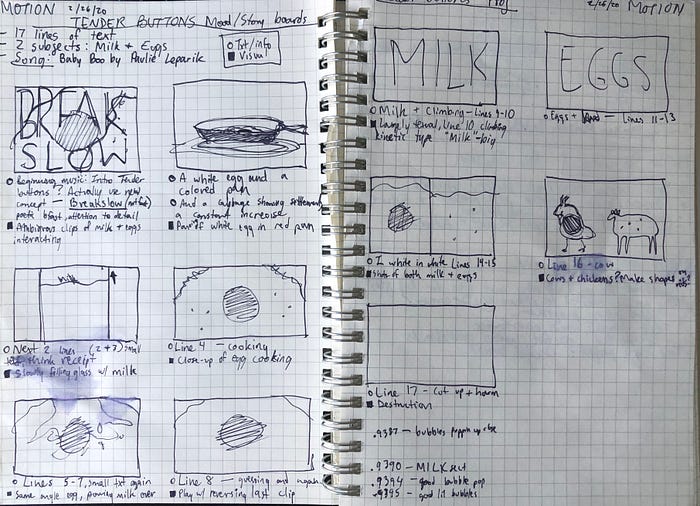 MOTION 2/26/20
TENDER BUTTONS Mood/Story boards
- 17 lines of text
- 2 subjects: Milk + Eggs
- Song: Baby Boo by Paulie Leparik
Txt/info
Visual
BREAK
SLOW
Beginning music: Intro Tender
buttons? Actually use new
concept - Breakslow
poetic bfast, attention to detail
Ambiguous clips of milk + eggs
interacting
A white egg and a
colored pan
And a cabbage showing settlement
a constant increase
Pan of white egg in red pan
milk
Next 2 lines (2+3) small
text, think receipt
Slowly filling glass w/ milk
Line 4 - cooking
Close-up of egg cooking
Lines 5-7, small txt again
Same angle egg, pouring milk over
Line 8 - guessing and again
Play w/ reversing last clip
2/26/20 MOTION
MILK
Milk + Climbing - Lines 9-10
Largely textual, line 10, climbing
kinetic type "Milk" - big
EGGS
Eggs + - Lines 11-13
I white in white Lines 14-15
Shots of both milk + eggs
Line 16 - cow
Cows + chickens? Make shapes
Line 17 - Cut up + harm
Destruction
.9387 - bubbles poppin up close
.9390 - MILK
.9394 - good bubble pop
.9395 - good lil bubbles